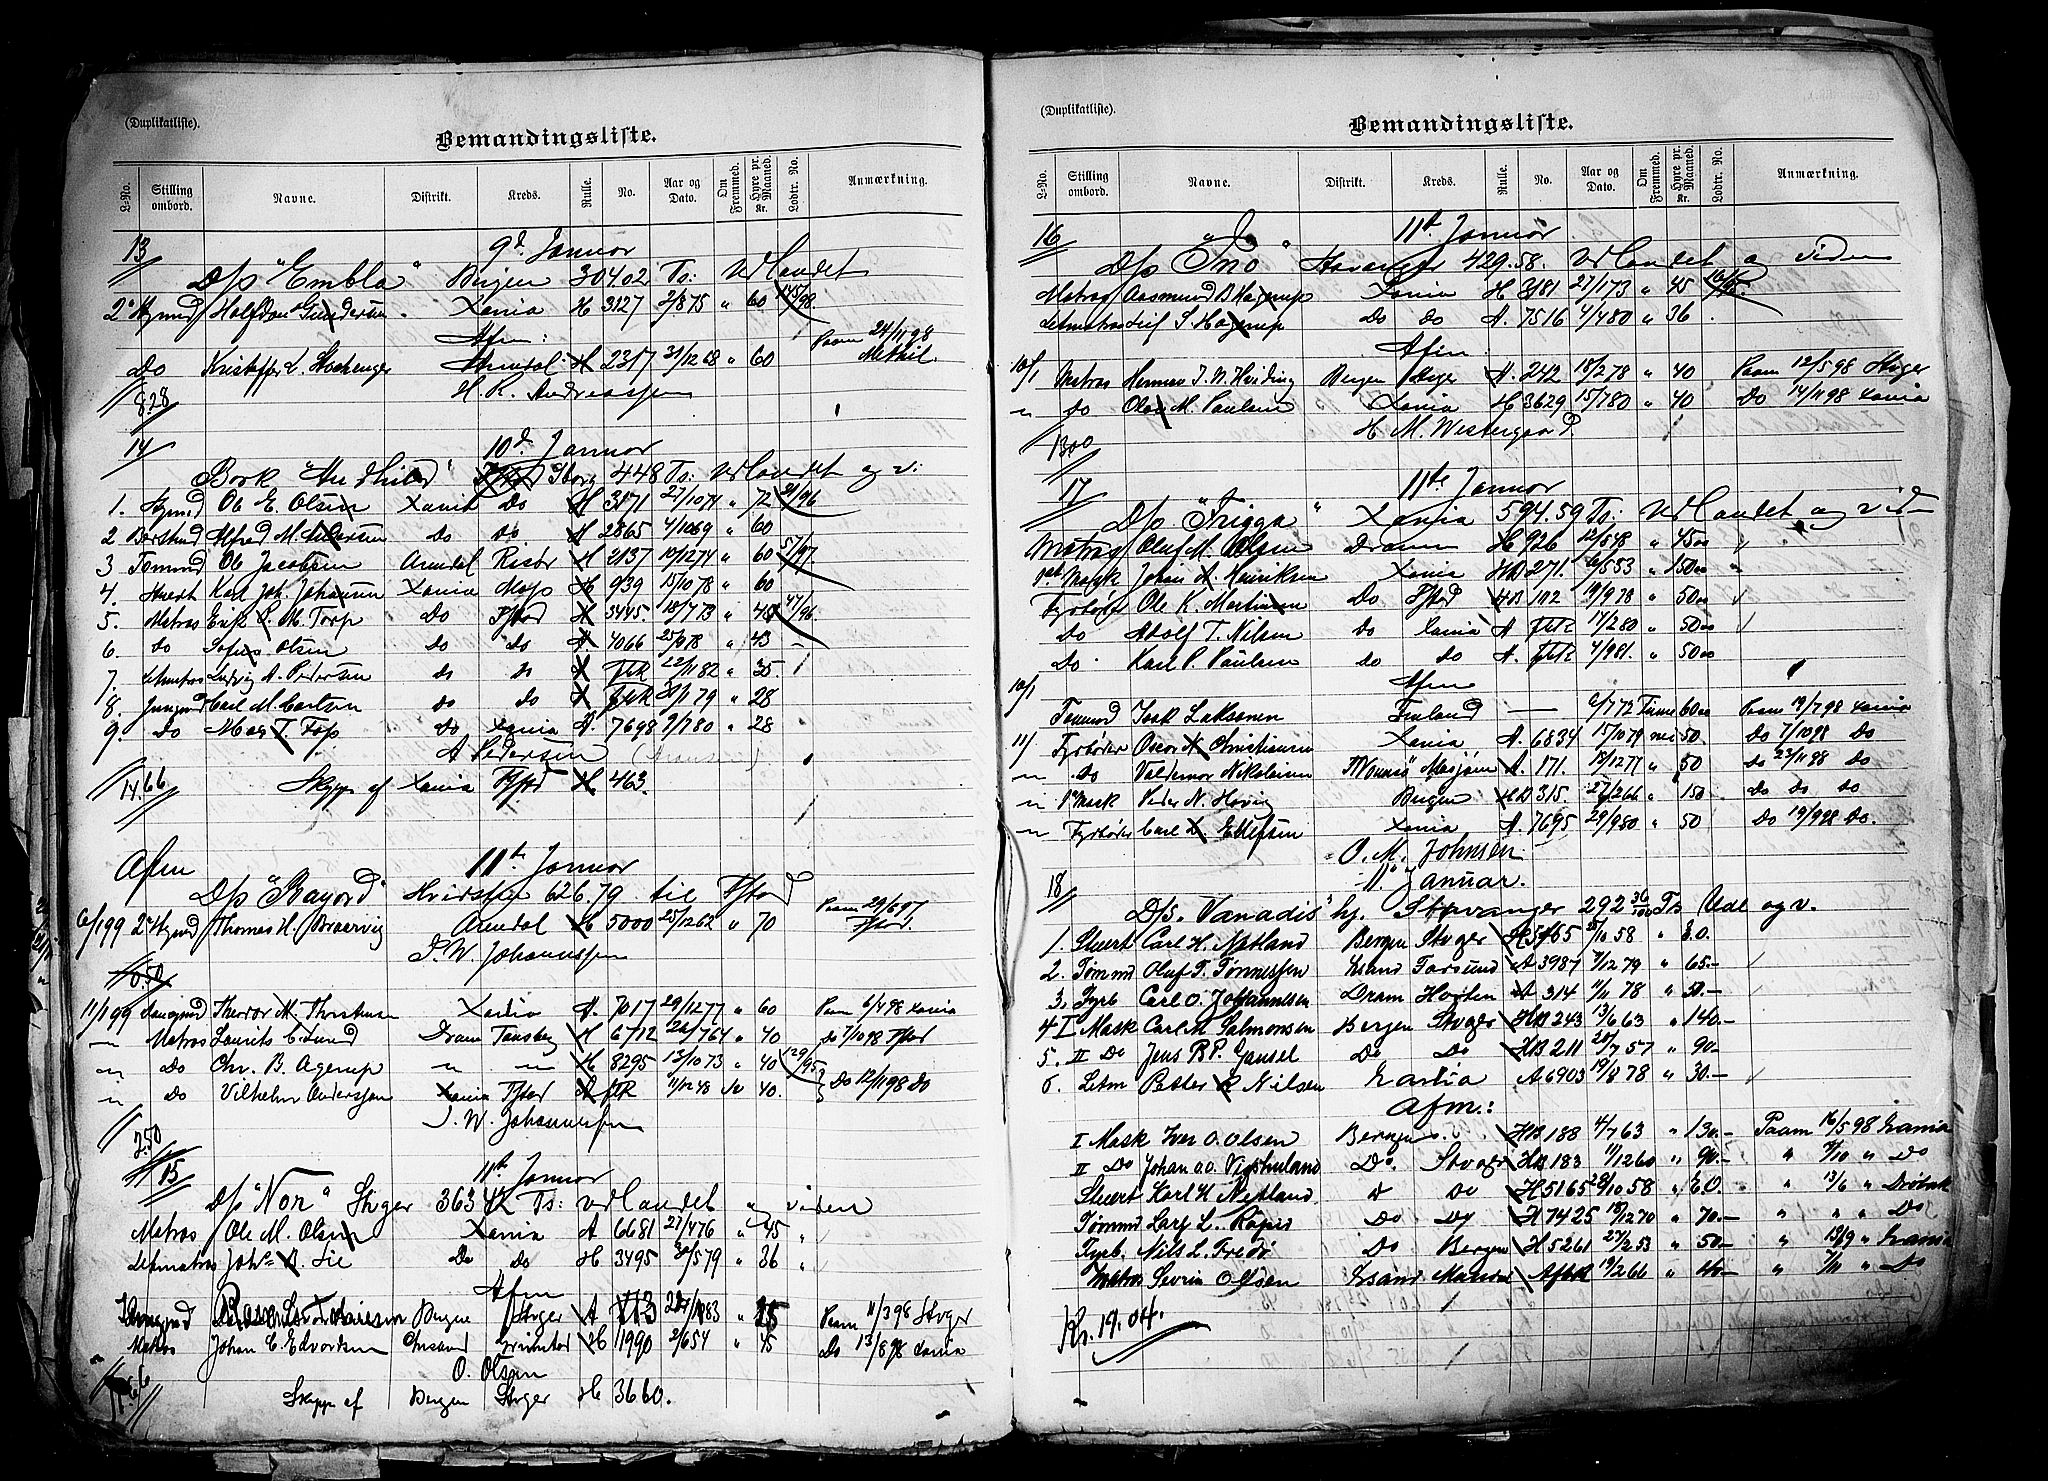 (Duplikatliste).
Bemandingsliste.
L-No. Stilling ombord. Navne. Distrikt. Kreds. Rulle. No. Aar og Dato. Om Fremmed. Hyre pr. Maaned. Kr. Lodtr. No. Anmærkning.
13 9d Januar
D/s "Embla" Bergen 304.02 Ts: Udlandet
2 Stymd Halfdan Gundersen Xania H 3127 2/8 75 " 60 145/98
Afm:
Do Kristoffer L. Arendal H 2317 31/12 68 " 60 Paam 24/11 98 Methil
H. R. Andreassen
8.28
14 10d Januar
Bark 448 Ts: Udlandet og v:
1. Stymd Ole E. Olsen Xania Do H 3171 27/10 71 " 72 21/96
2 Alfred M. Andersen Do Do H 2865 4/10 69 " 60
3 Tømmd Ole Jacobsen Arendal Risør H 2137 10/12 74 " 60 57/97
4. Stuert Karl Joh. Johansen Xania Moss H 939 15/10 78 " 60
5. Matros Erik P. M. Torp Do Fstad H 3445 18/7 73 " 48 47/96
6. do Sofus Olsen do do A 4066 25/9 78 " 43
7. Letmatros Ludvig A. Pedersen do do A 22/11 82 " 35
8. Jungmd Carl M. Carlsen do do 79 " 28
9. Do T. Do Xania A. 7698 9/7 80 " 28
A Pedersen
14.66 Skipp af Xania Fstad H 463.
Afm 11te Januar
D/s "Ragnrd" Hvidsten 626.79 til Fstad
6/1 99 2 Stymd Thomas H. Braarvig Arendal H 5000 25/12 62 " 70 Paam 29/6 97 Fstad.
J. W. Johannessen
0.50
11/1 99 Theodor M. Thostensen Xania A. 7017 29/12 77 " 60 Paam 6/4 98 Xania
" Matros Laurits C. Lund Dram Tønsberg H 6712 24/7 64 " 40 do 7/10 98 Fstad
" Do Chr. B. Agerup " " H 8295 13/10 73 " 40 129/95
" Do Vilhelm Anderssen Xania Fstad A 11/12 48 Sv 40. Do 12/11 98 Do
J. W. Johannessen
2.50
15 11te Januar
D/s "Nor" Stvger 363.42 Ts: Udlandet og viden
Matros Ole M. Olsen Xania A 6681 27/4 76 " 45 "
Letmatros Johs B. Lie Do Do H 3495 30/5 79 " 36 "
Afm
Bergen Stvger A 113 83 " 25 Paam 11/3 98 Stvger
Matros Johan C. Edvardsen Chrsand H 1990 2/6 54 " 45 Do 13/8 98 Xania
O. Olsen
Skipp af Bergen Stvger H 3660.
(Duplikatliste).
Bemandingsliste.
L-No. Stilling ombord. Navne. Distrikt. Kreds. Rulle. No. Aar og Dato. Om Fremmed. Hyre pr. Maaned. Kr. Lodtr. No. Anmærkning.
16 11te Januar
D/s "Ino" Stavanger 429.58. Udlandet og viden
Matros Aasmund B. Hagerup Xania H 3181 21/1 73 " 45
Letmatros Leif S. Hagerup Do do A. 7516 4/4 80 " 36
Afm
10/1 Matros Herman J. N. Hviding Bergen Stvger A. 242 18/2 78 " 40 Paam 12/5 98 Stvger
" do Olav M. Paulsen Xania H 3629 15/7 80 " 40 Do 14/11 98 Xania
H. M. Westergaard.
1300
17 11te Januar
D/s "Frigga" Xania 594.59 Ts: Udlandet og vid
Matros Oluf M. Olsen Dramn H 926 12/5 48 " 45 00 "
1ste Mask Johan A. Henriksen Xania HB 271. 6/5 53 " 150 00 "
Fyrbøder Ole K. Martinsen Do Fstad HB 102 19/9 78 " 50 00
Do Adolf T. Nilsen do Xania A 17/2 80 " 50 00
Do Karl P. Paulsen do do A. 4/9 81. " 50 00
Afm
10/1 Tømmd Isak Laksonen Finland — 6/7 72 Finne 60 00 Paam 19/7 98 Xania
11/1 Fyrbøder Oscar N. Christiansen Xania A. 6834 15/10 79 nei 50. Do 7/10 98 Do
" Do Valdemar Nikolaisen Mosjøen A. 171. 18/12 77 " 50 do 23/11 98 do
" 1 Mask Peder N. Hovig Bergen HB 315. 27/2 66 " 150 do do do
" Fyrbøder Carl D. Ellefsen Xania A. 7695 29/9 80 " 50 Do 19/9 98 Do.
O. M. Johnsen
18 11te Januar.
D/s. "Vanadis" hj. Stavanger 292 36/100 Ts Udl og v.
1. Stuert Carl H. Netland Bergen Stvger H 5165 28/10 58 " E.O.
2. Tømmd Oluf T. Tønnessen Xsand Farsund A 3987 7/12 79 " 65.—
3. Fyrb Carl O. Johannesen Dram Horten A 314 11/11 78 " 50.—
4 I Mask Carl M Salmonsen Bergen Stvger HB 243 13/6 63 " 140.—
5. II Do Jens B P. Gausel Do Do HB 211 20/7 57 " 90.—
6. Letm Petter R Nilsen Xania A 6903 19/8 78 " 30.—
Afm.:
I Mask Iver O. Olsen Bergen HB 188 4/7 63 " 130.— Paam 16/5 98 Xania
II Do Johan a.o. Vigshuland Do. Stvger HB 183 11/12 60 " 90.— " 4/10 " Do
Stuert Karl H Netland " Do H 5165 28/10 58 " E.O. " 13/6 " Drøbak
Tømmd Lars L. Do Do H 7425 18/12 70 " 70.— " " " Do
Fyrb. Nils L. Fredø Do Bergen H 5261 27/2 53 " 50.— " 13/9 " Xania
Matros Severin Olsen Xsand Mandal A 19/2 66 " 40.— " 7/11 " Do
Kr. 19.04.